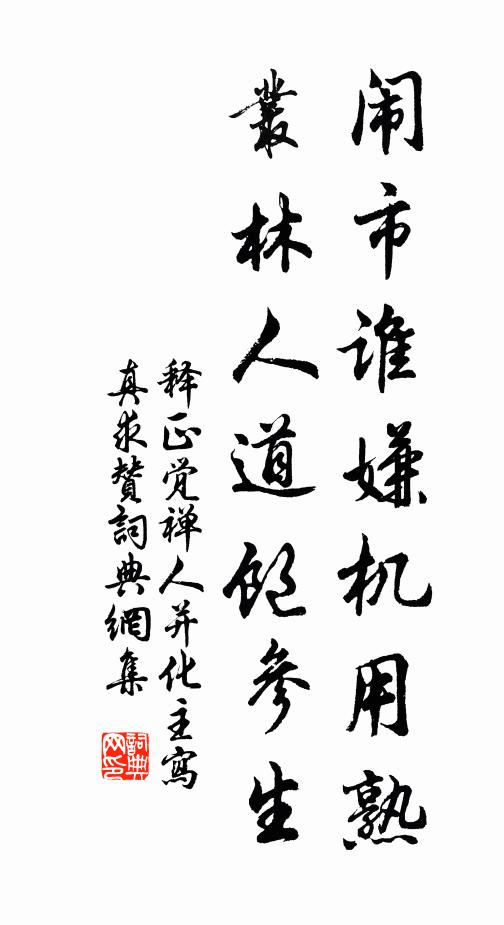 闹市谁嫌机用熟
叢林人道饱参生
释正觉禅人并化主寫
真求赞詞典網集
詞典
网印